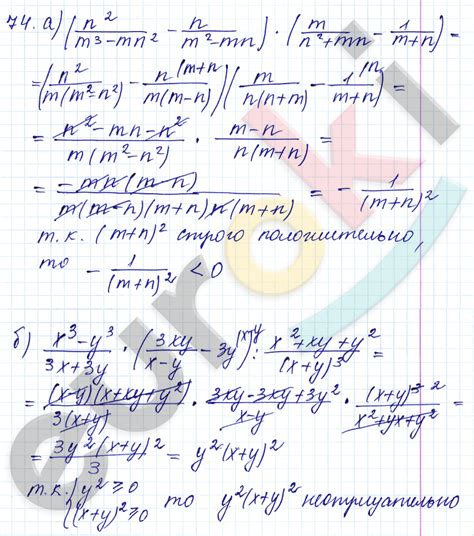 74. а) (n²/(m³-mn²) - n/(m²-mn)) · (m/(n²+mn) - 1/(m+n)) =
= (n²/(m(m²-n²)) - n^{(m+n}/(m(m-n))) (m/(n(n+m)) - 1^{(n}/(m+n)) =
= (n²-mn-n²)/(m(m²-n²)) · (m-n)/(n(m+n)) =
= (-mn(m-n))/(m(m-n)(m+n)n(m+n)) = -1/(m+n)²
т.к. (m+n)² строго положительно,
то -1/(m+n)² < 0
б) (x³-y³)/(3x+3y) · (3xy/(x-y) - 3y^{(x+y}) : (x²+xy+y²)/(x+y)³ =
= ((x-y)(x+xy+y²))/(3(x+y)) · (3xy-3xy+3y²)/(x-y) · (x+y)^{3 2}/(x²+xy+y²) =
= (3y²(x+y)²)/3 = y²(x+y)²
т.к. { y² ≥ 0
{ (x+y)² ≥ 0 то y²(x+y)² неотрицательно
euroki